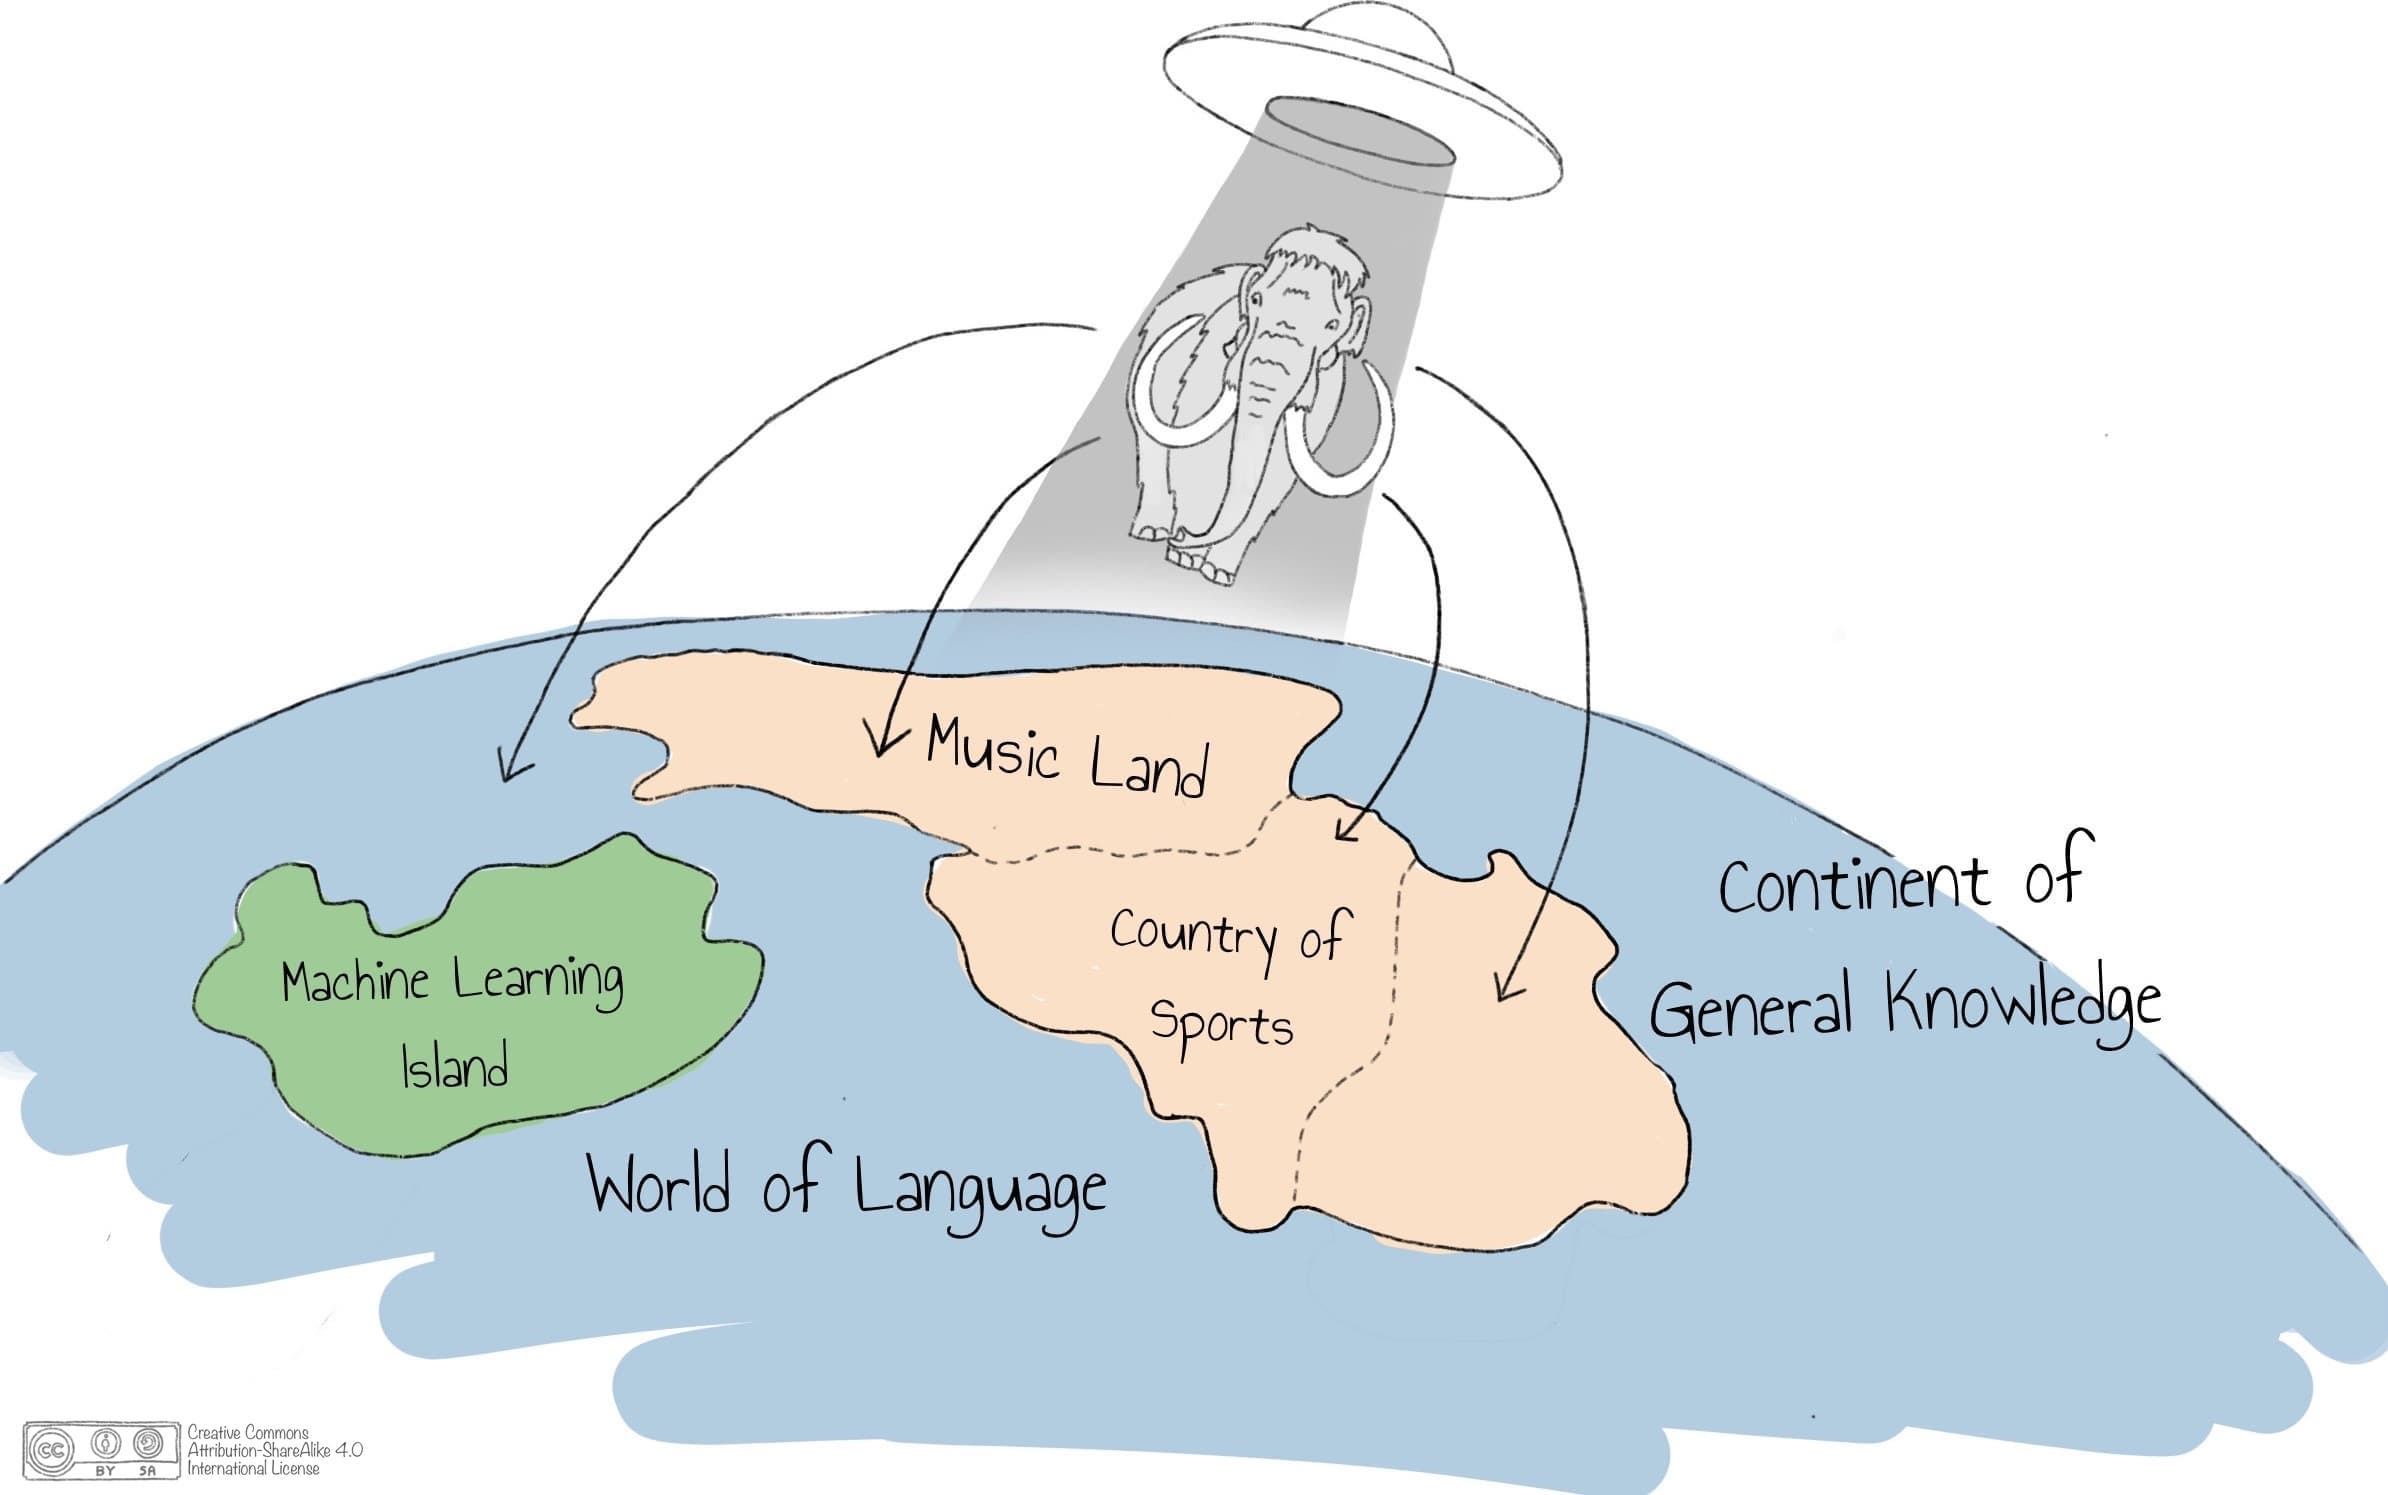 Music Land
Continent of
General Knowledge
Country of
Sports
Machine Learning
Island
World of Language
cc
BY SA
Creative Commons
Attribution-ShareAlike 4.0
International License